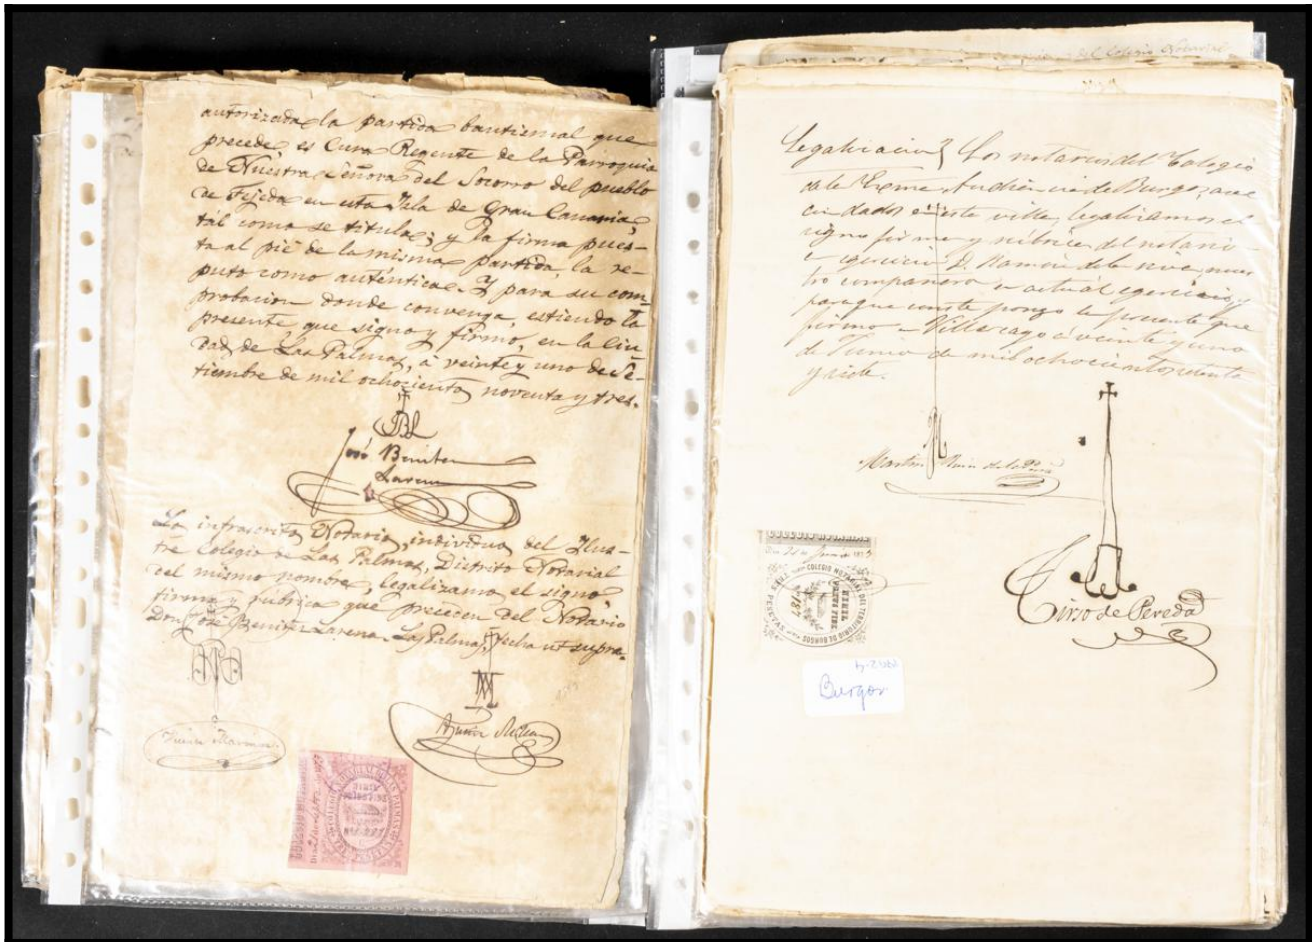 autorizada la partida bautismal que
precede, es Cura Regente de la Parroquia
de Nuestra Señora del Socorro del pueblo
de Tejeda en esta Isla de Gran Canaria,
tal como se titula; y la firma pues-
ta al pié de la misma partida, la re-
puto como auténtica. Y para su com-
probacion donde convenga, estiendo la
presente que signo y firmo, en la Ciu
dad de Las Palmas, á veinte y uno de Se-
tiembre de mil ochocientos noventa y tres.
José Benitez
Larena
Los infrascritos Notarios, individuos del Ilus-
tre Colegio de Las Palmas, Distrito Notarial
del mismo nombre, legalizamos el signo,
firma y rúbrica que preceden del Notario
Don José Benitez Larena. Las Palmas, fecha ut supra.
Vicente
Agustin
COLEGIO NOTARIAL DE LAS PALMAS
del Colegio Notarial
Legalizacion Los notarios del Colegio
de la Exma Audiencia de Burgos, ave
cindados en esta villa, legalizamos el
signo firma y rúbrica del notario
D. Ramon de la nues
tro compañero en actual egercicio, y
para que conste pongo la presente que
firmo Villarcayo á veinte y uno
de Junio de mil ochocientos setenta
y siete.
Martin Ruiz de la Peña
Tirso de Pereda
COLEGIO NOTARIAL DEL TERRITORIO DE BURGOS
TRES PESETAS
NIHIL PRIUS FIDE
Burgos